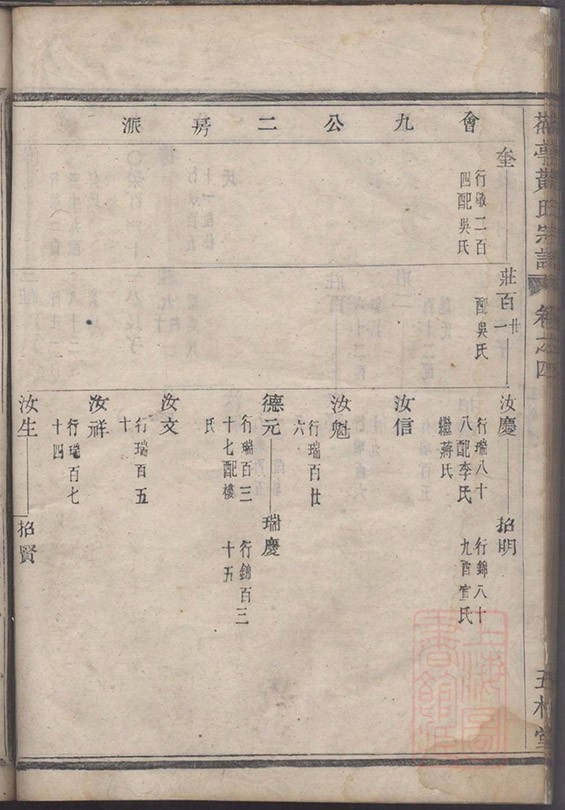 會九公二房派
奎
行敬二百
四配吳氏
莊百廿一
配吳氏
汝慶
行瑞八十
八配李氏
繼蔣氏
招明
行錦八十
九配宣氏
汝信
汝魁
行瑞百廿
六
德元
行瑞百三
十七配樓
氏
瑞慶
行錦百三
十五
汝文
行瑞百五
十
汝祥
行瑞百七
十四
汝生
招賢
黃氏宗譜
卷之四
上海圖書館